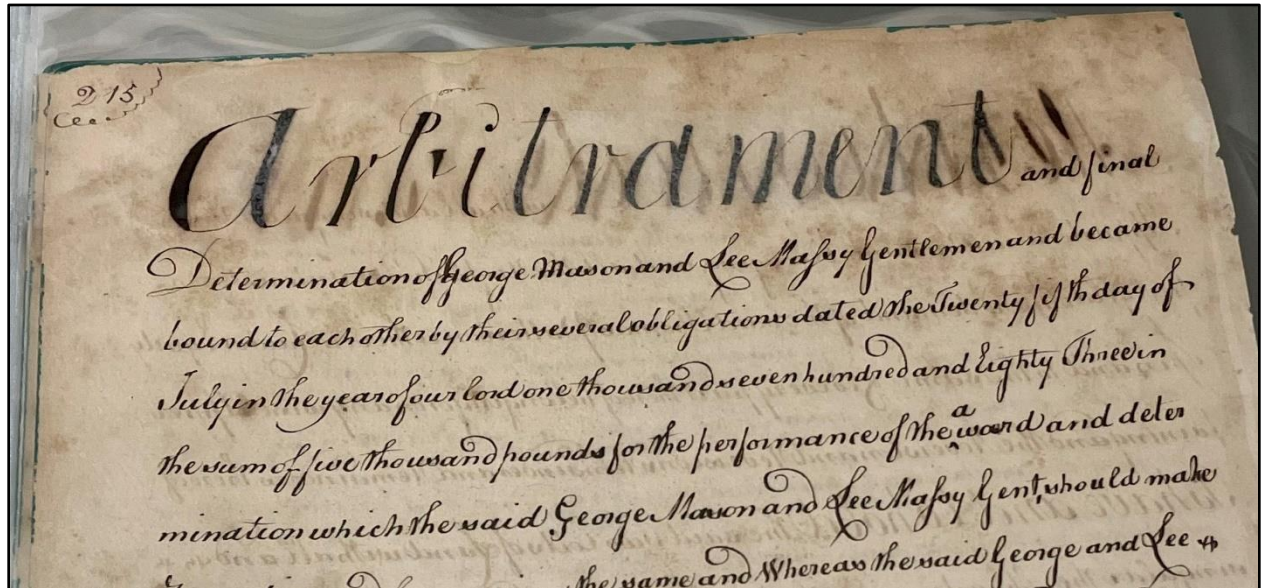 215
Arbitrament and final
Determination of George Mason and Lee Maſsy Gentlemen and became
bound to each other by their several obligations dated the Twenty fifth day of
July in the year of our lord one thousand seven hundred and Eighty Three in
the sum of five thousand pounds for the performance of the award and deter
mination which the said George Mason and Lee Maſsy Gent, should make
the same and Whereas the said George and Lee